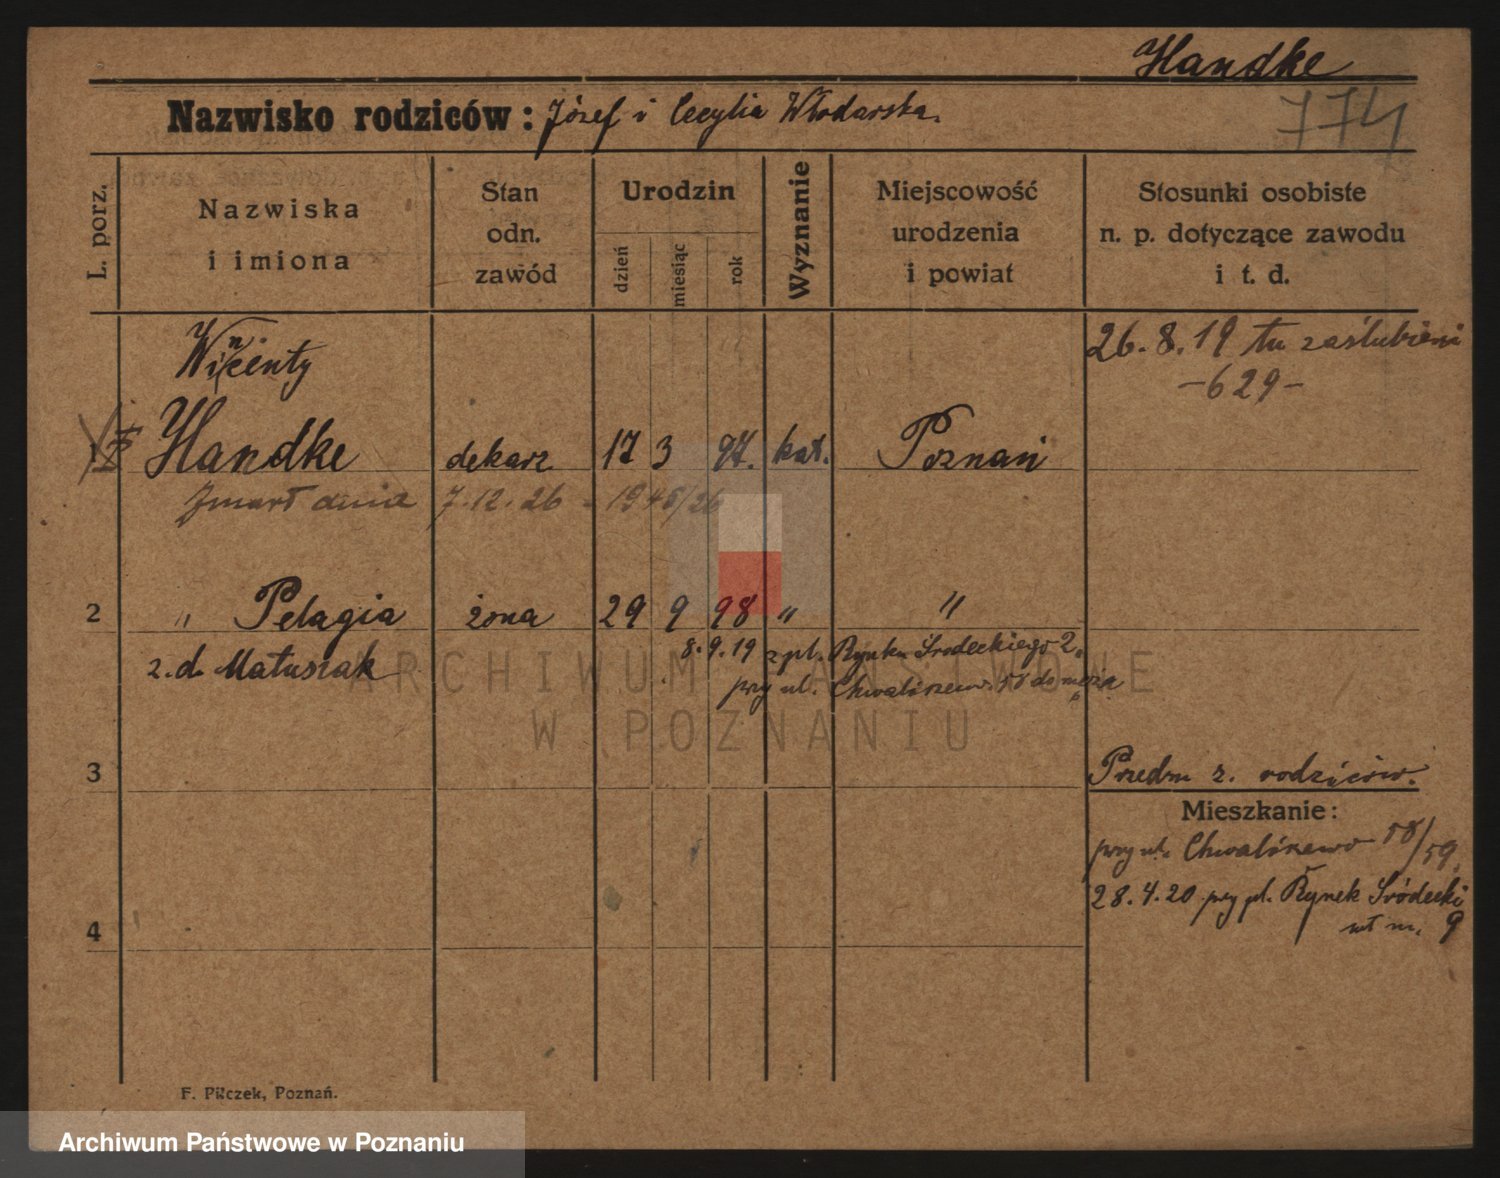 Handke
Nazwisko rodziców: Józef i Cecylia Włodarska.
774
L. porz.
Nazwiska
i imiona
Stan
odn.
zawód
Urodzin
dzień
miesiąc
rok
Wyznanie
Miejscowość
urodzenia
i powiat
Stosunki osobiste
n. p. dotyczące zawodu
i t. d.
26. 8. 19 tu zaślubieni
-629-
Wincenty
Handke dekarz 17 3 97. kat. Poznań
Zmarł dnia 7.12.26 - 1945/26
2 " Pelagia żona 29 9 98 " "
z. d. Matusiak
8. 9. 19 z pl. Rynku Środeckiego 2,
przy ul. Chwaliszewo 58 do męża
3
Przedm z. rodziców.
Mieszkanie:
przy ul. Chwaliszewo 58/59.
28. 4. 20 przy pl. Rynek Śródecki
m. 9
4
F. Pilczek, Poznań.
ARCHIWUM PAŃSTWOWE
W POZNANIU
Archiwum Państwowe w Poznaniu